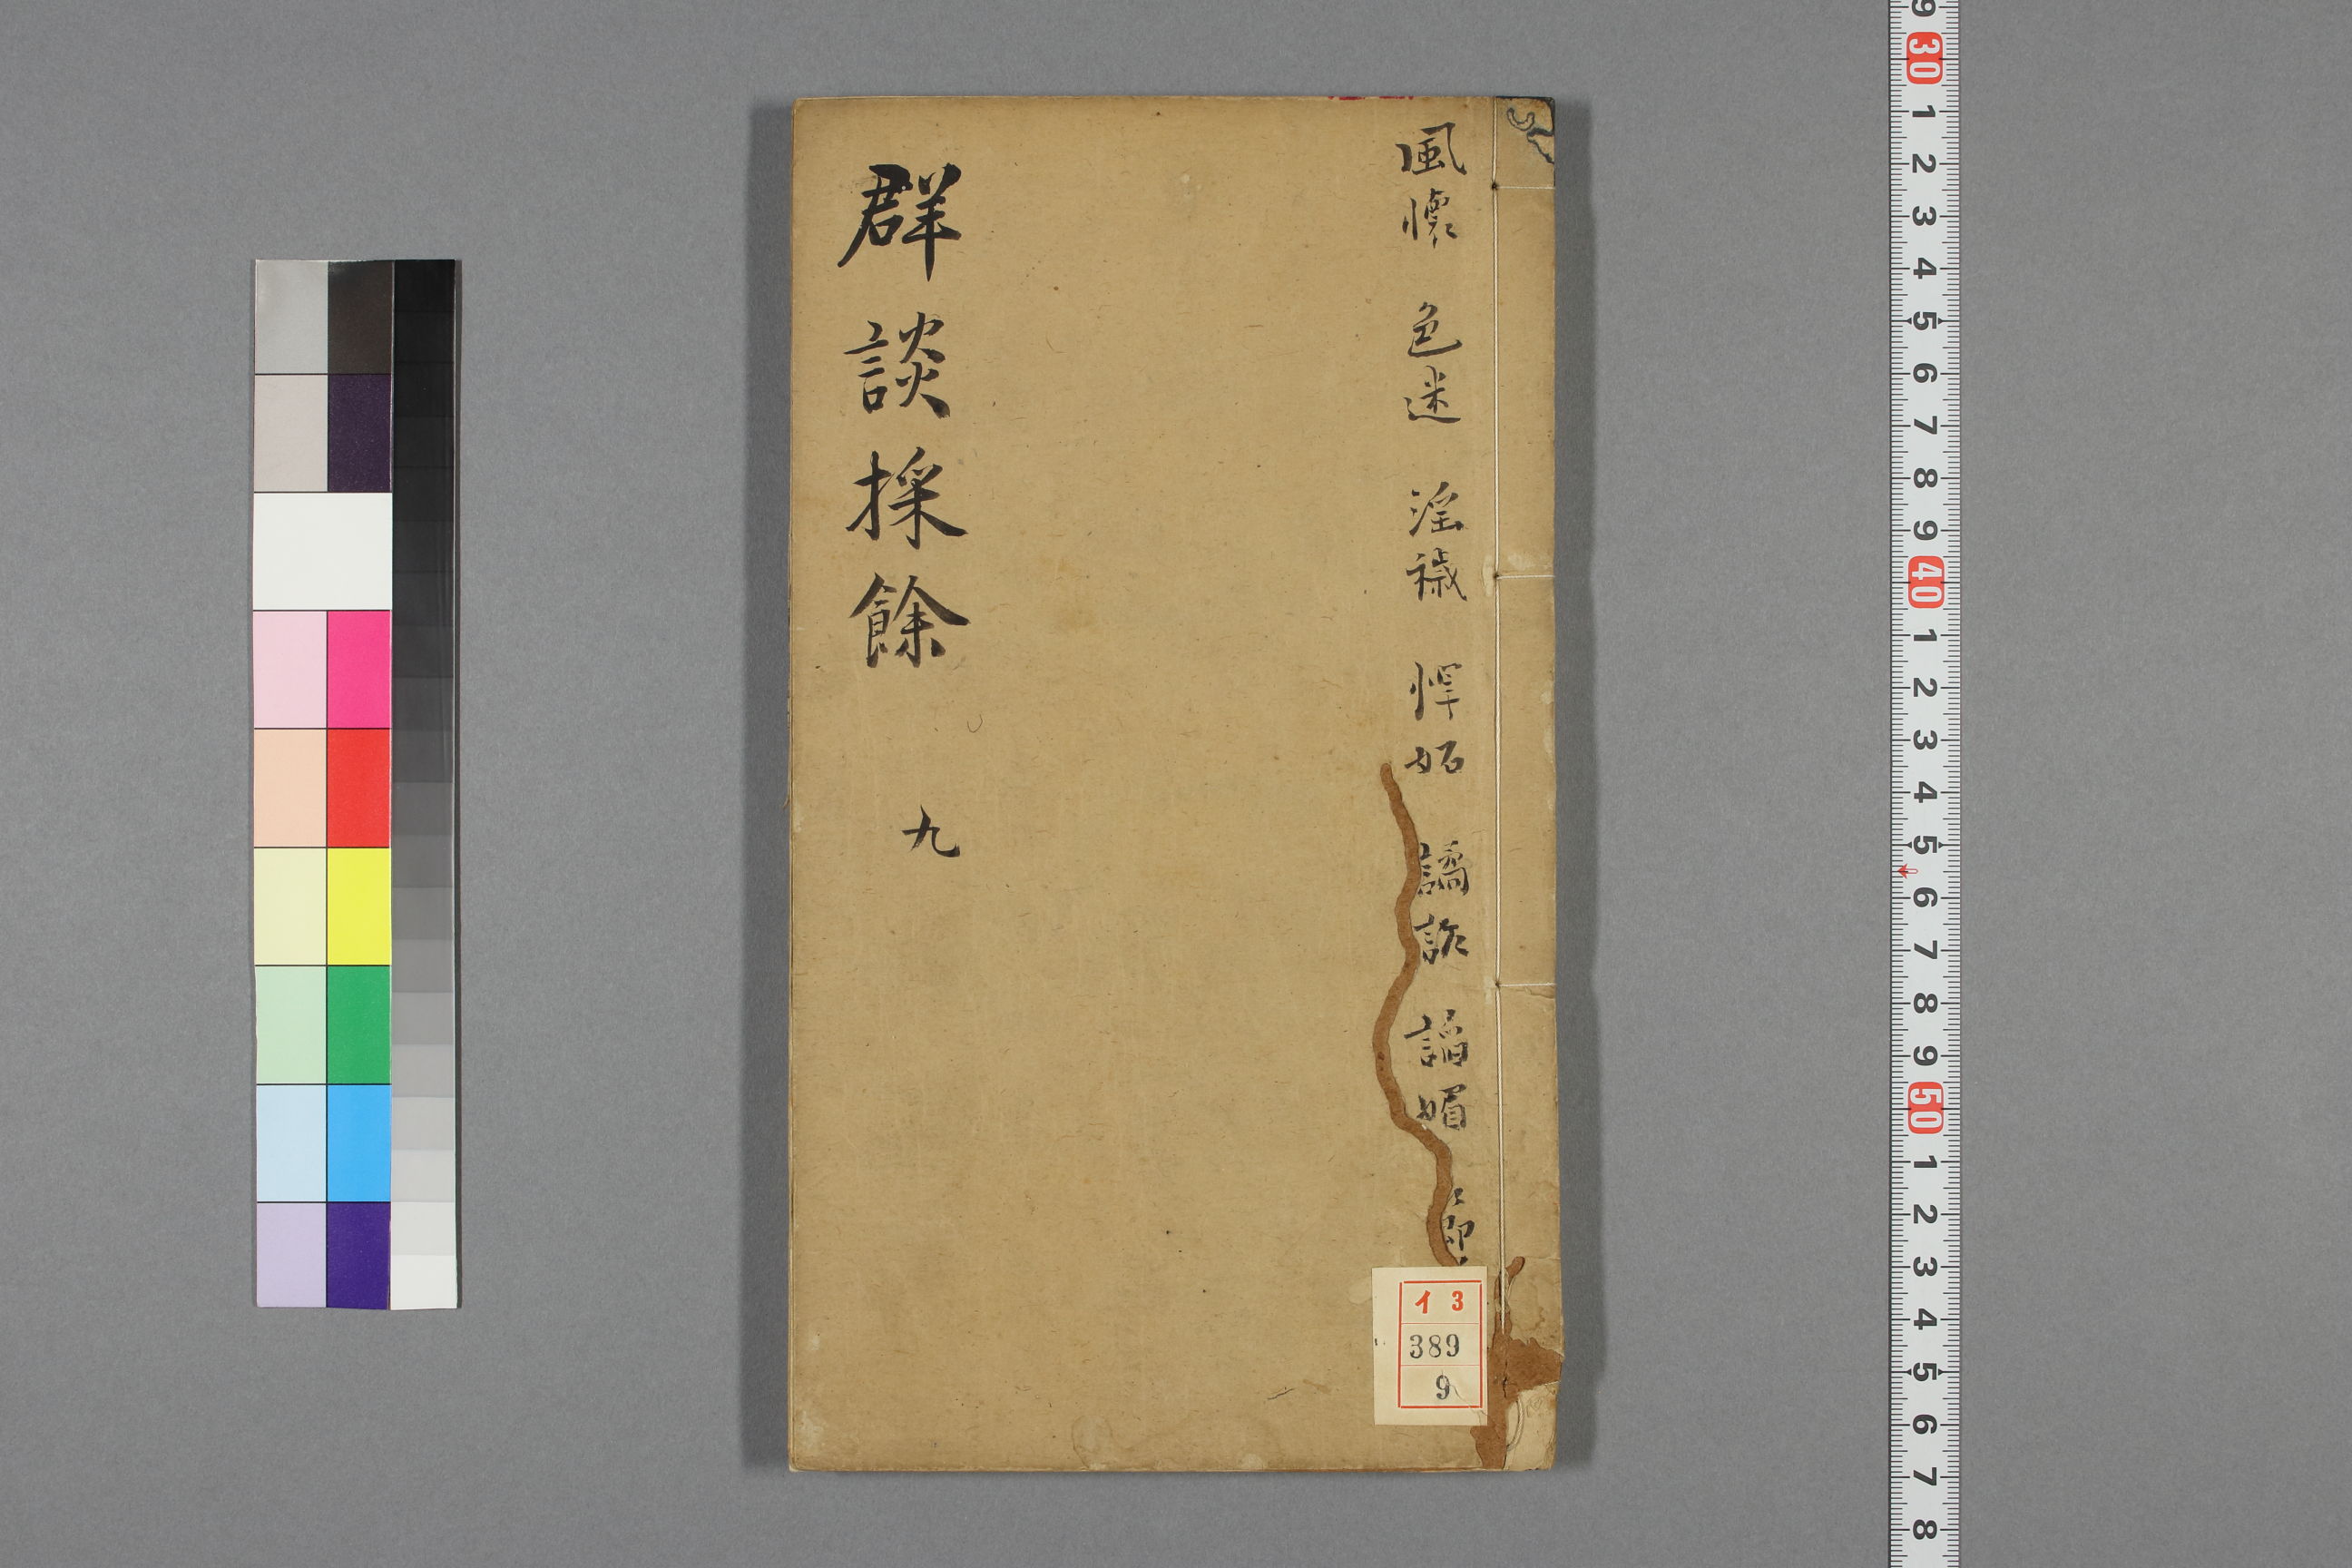 風懷 色迷 淫穢 悍妬 譎詐 諂媚
群談採餘 九
イ 3
389
9
9 30 1 2 3 4 5 6 7 8 9 40 1 2 3 4 5 6 7 8 9 50 1 2 3 4 5 6 7 8